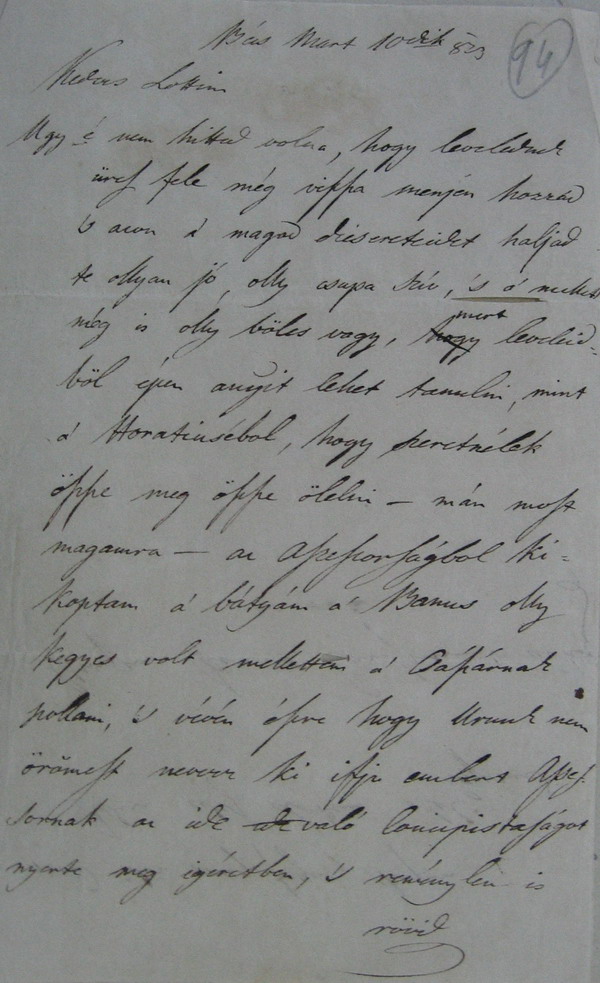 Bécs Mart 10dik 823
94
Kedves Lottim
Ugy é nem hitted volna, hogy leveleidnek
üress fele még vissza menjen hozzád
's azon a' magad dicséreteidet halljad
te ollyan jó, olly csupa szív, 's a' mellett
még is olly bölcs vagy, hogy mert leveleid=
ből épen anyit lehet tanulni, mint
a' Horatiuséból, hogy szeretnélek
össze meg össze ölelni — mán most
magamra — az Assessorságbol ki=
koptam a' bátyám a' Banus olly
kegyes volt mellettem a' Császárnak
szollani, 's vévén észre hogy Urunk nem
örömest nevez ki ifju embert Asses=
sornak az ide való Concipistaságot
nyerte meg igéretben, 's reménylem is
rövid